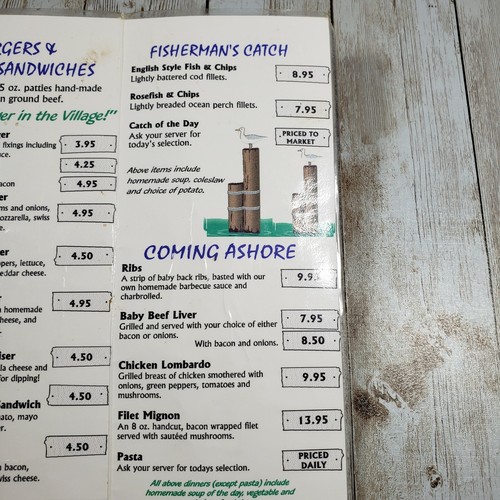 RGERS &
SANDWICHES
5 oz. patties hand-made
n ground beef.
er in the Village!"
er
fixings including
ce.
3.95
4.25
acon
4.95
er
ms and onions,
ozzarella, swiss
e.
4.95
er
pers, lettuce,
eddar cheese.
4.50
homemade
heese, and
4.95
iser
la cheese and
for dipping!
4.50
Sandwich
ato, mayo
er.
4.50
n bacon,
wiss cheese.
4.50
FISHERMAN'S CATCH
English Style Fish & Chips
Lightly battered cod fillets.
8.95
Rosefish & Chips
Lightly breaded ocean perch fillets.
7.95
Catch of the Day
Ask your server for
today's selection.
PRICED TO
MARKET
Above items include
homemade soup, coleslaw
and choice of potato.
COMING ASHORE
Ribs
A strip of baby back ribs, basted with our
own homemade barbecue sauce and
charbroiled.
9.95
Baby Beef Liver
Grilled and served with your choice of either
bacon or onions.
7.95
With bacon and onions.
8.50
Chicken Lombardo
Grilled breast of chicken smothered with
onions, green peppers, tomatoes and
mushrooms.
9.95
Filet Mignon
An 8 oz. handcut, bacon wrapped filet
served with sautéed mushrooms.
13.95
Pasta
Ask your server for todays selection.
PRICED
DAILY
All above dinners (except pasta) include
homemade soup of the day, vegetable and